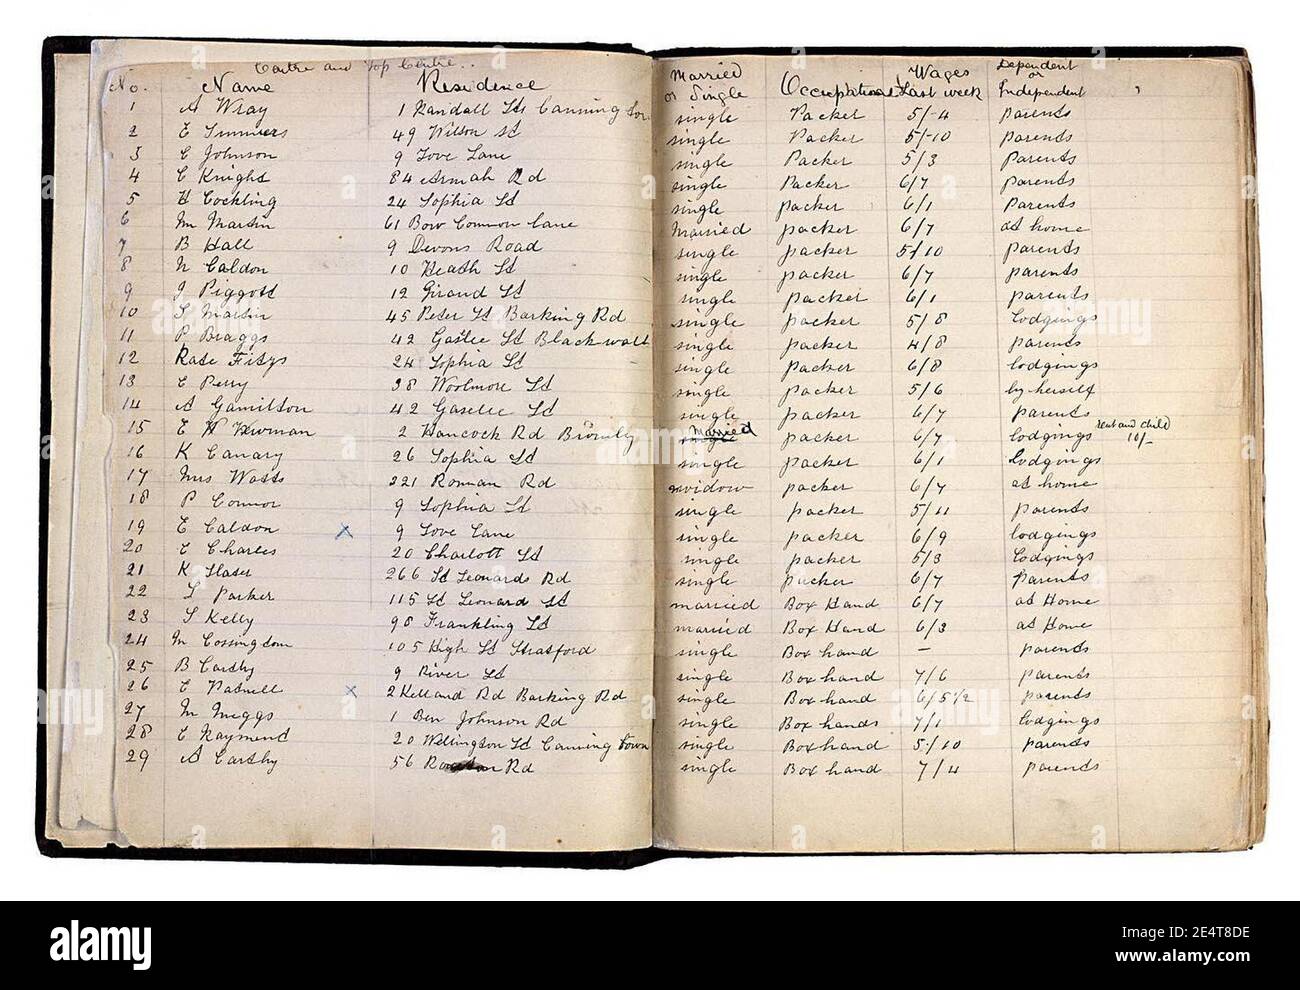 Centre and Top Centre..
No. Name Residence Married or Single Occupation Wages Last week Dependent or Independent
1 A Wray 1 Randall St Canning Town single Packer 5/-4 parents
2 E Simmers 49 Wilson St single Packer 5/-10 parents
3 E Johnson 9 Love Lane single Packer 5/3 Parents
4 E Knight 84 Armah Rd single Packer 6/7 parents
5 H Cockling 24 Sophia St single packer 6/1 parents
6 M Martin 61 Bow Common Lane Married packer 6/7 at home
7 B Hall 9 Devons Road single packer 5/10 parents
8 N Caldon 10 Heath St single packer 6/7 parents
9 J Piggott 12 Giraud St single packer 6/1 parents
10 S Martin 45 Peter St Barking Rd single packer 5/8 lodgings
11 P Braggs 42 Gaslee St Blackwall single packer 4/8 parents
12 Kate Fitys 24 Sophia St single packer 6/8 lodgings
13 E Perry 28 Woolmore St single packer 5/6 by herself
14 A Gamilton 42 Gaselee St single packer 6/7 parents
15 E W Newman 2 Hancock Rd Bromly single Married packer 6/7 lodgings rent and child 10/-
16 K Canary 26 Sophia St single packer 6/1 lodgings
17 Mrs Watts 221 Roman Rd widow packer 6/7 at home
18 P Connor 9 Sophia St single packer 5/11 parents
19 E Caldon x 9 Love Lane single packer 6/9 lodgings
20 E Charles 20 Charlott St single packer 5/3 lodgings
21 K Slater 266 St Leonards Rd single packer 6/7 Parents
22 S Parker 115 St Leonard St married Box Hand 6/7 at Home
23 S Kelly 98 Frankling St married Box Hand 6/3 at Home
24 M Cossingdon 105 High St Stratford single Box hand – parents
25 B Cardby 9 River St single Box hand 7/6 parents
26 E Patnell x 2 Kelland Rd Barking Rd single Box hand 6/5 1/2 parents
27 M Meggs 1 Ben Johnson Rd single Box hands 7/1 lodgings
28 E Raymend 20 Wellington St Canning Town single Box hand 5/10 parents
29 A Carthy 56 Rd single Box hand 7/4 parents
alamy
Image ID: 2E4T8DE
www.alamy.com